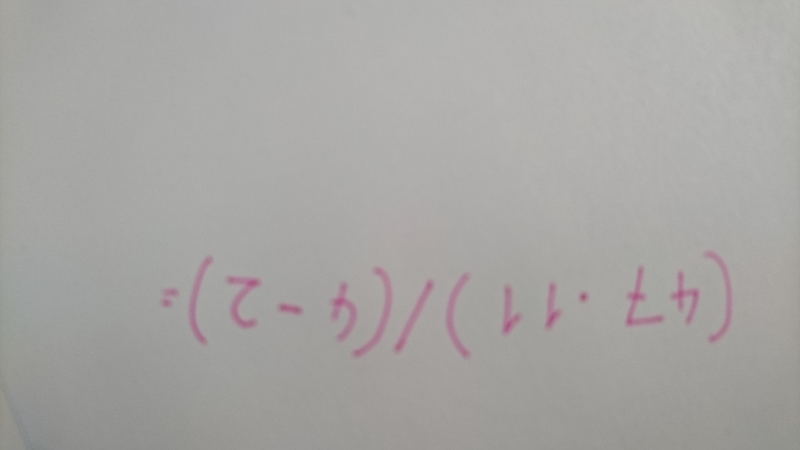 (47 · 11) / (4 - 2) =